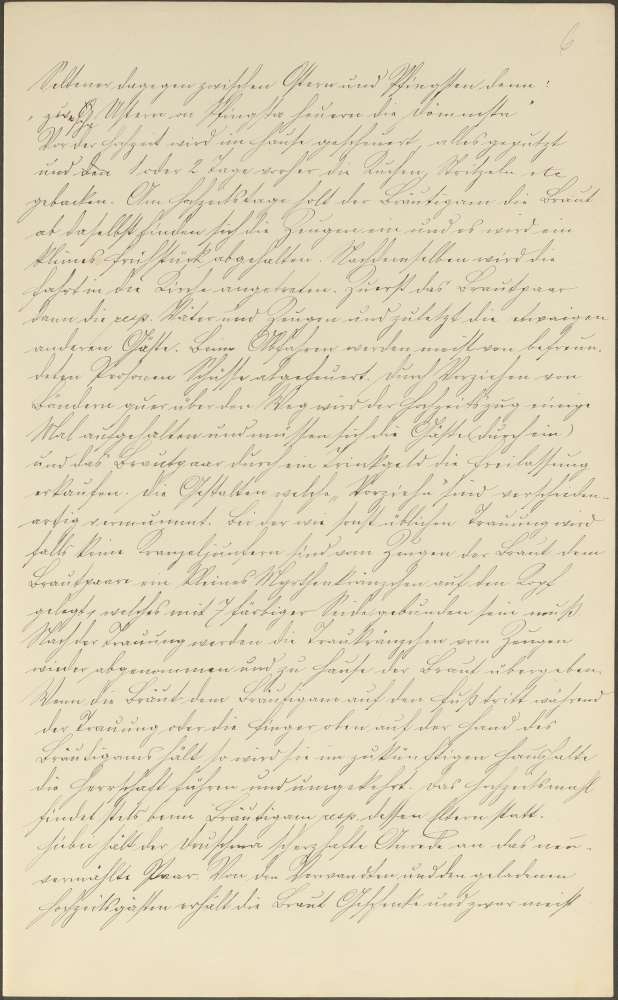 6
Seltener dagegen zwischen Ostern und Pfingsten denn:
„ zwisch Ustern on Pfingsta heuern die Dömmesta "
Vor der Hochzeit wird im Hause gescheuert, alles geputzt
und den 1 oder 2 Tage vorher die Kuchen, Stritzeln etc
gebacken. Am Hochzeitstage holt der Bräutigam die Braut
ab daselbst finden sich die Zeugen ein und es wird ein
kleines Frühstück abgehalten. Nach demselben wird die
Fahrt in die Kirche angetreten. Zuerst das Brautpaar
dann die resp. Väter und Zeugen und zuletzt die etwaigen
anderen Gäste. Beim Abfahren werden meist von befreun-
deten Personen Schüsse abgefeuert. Durch Vorziehen von
Bändern quer über den Weg wird der Hochzeitszug einige
Mal aufgehalten und müssen sich die Gäste (durch ein)
und das Brautpaar durch ein Trinkgeld die Freilassung
erkaufen. Die Gestalten welche „Vorziehn" sind verschieden-
artig vermummt. Bei der wie sonst üblichen Trauung wird
falls keine Kranzeljunfern sind vom Zeugen der Braut dem
Brautpaare ein kleines Myrthenkränzchen auf den Kopf
gelegt, welches mit 7 färbiger Seide gebunden sein muß
Nach der Trauung werden die Traukränzchen vom Zeugen
wieder abgenommen und zu Hause der Braut übergeben.
Wenn die Braut dem Bräutigam auf den Fuß tritt während
der Trauung oder die Finger oben auf der Hand des
Bräutigams hält so wird sie im zukünftigen Haushalte
die Herrschaft führen und umgekehrt. Das Hochzeitsmahl
findet stets beim Bräutigam resp. dessen Eltern statt.
hält der Druschma scherzhafte Anrede an das neu-
vermählte Paar. Von den Verwandten und den geladenen
Hochzeitsgästen erhält die Braut Geschenke und zwar meist